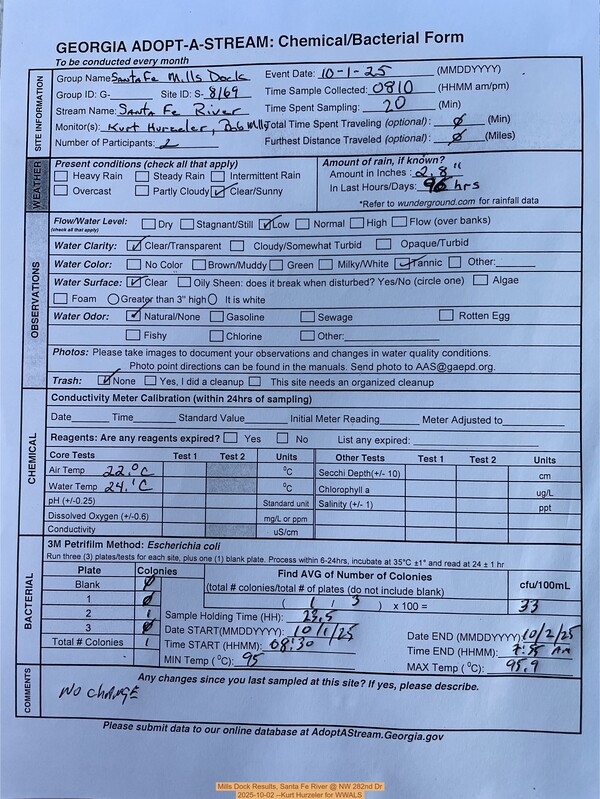 GEORGIA ADOPT-A-STREAM: Chemical/Bacterial Form
To be conducted every month
SITE INFORMATION
Group Name: SantaFe Mills Dock
Event Date: 10-1-25 (MMDDYYYY)
Group ID: G- Site ID: S- 8169
Time Sample Collected: 0810 (HHMM am/pm)
Stream Name: Santa Fe River
Time Spent Sampling: 20 (Min)
Monitor(s): Kurt Hurzeler, Bob Mills
Total Time Spent Traveling (optional): 0 (Min)
Number of Participants: 2
Furthest Distance Traveled (optional): 0 (Miles)
WEATHER
Present conditions (check all that apply)
Heavy Rain Steady Rain Intermittent Rain
Overcast Partly Cloudy Clear/Sunny
Amount of rain, if known?
Amount in Inches: 2.8"
In Last Hours/Days: 96 hrs
*Refer to wunderground.com for rainfall data
OBSERVATIONS
Flow/Water Level: Dry Stagnant/Still Low Normal High Flow (over banks)
(check all that apply)
Water Clarity: Clear/Transparent Cloudy/Somewhat Turbid Opaque/Turbid
Water Color: No Color Brown/Muddy Green Milky/White Tannic Other:
Water Surface: Clear Oily Sheen: does it break when disturbed? Yes/No (circle one) Algae
Foam Greater than 3" high It is white
Water Odor: Natural/None Gasoline Sewage Rotten Egg
Fishy Chlorine Other:
Photos: Please take images to document your observations and changes in water quality conditions.
Photo point directions can be found in the manuals. Send photo to AAS@gaepd.org.
Trash: None Yes, I did a cleanup This site needs an organized cleanup
CHEMICAL
Conductivity Meter Calibration (within 24hrs of sampling)
Date Time Standard Value Initial Meter Reading Meter Adjusted to
Reagents: Are any reagents expired? Yes No List any expired:
Core Tests Test 1 Test 2 Units Other Tests Test 1 Test 2 Units
Air Temp 22.°C °C Secchi Depth(+/- 10) cm
Water Temp 24.'C °C Chlorophyll a ug/L
pH (+/-0.25) Standard unit Salinity (+/- 1) ppt
Dissolved Oxygen (+/-0.6) mg/L or ppm
Conductivity uS/cm
BACTERIAL
3M Petrifilm Method: Escherichia coli
Run three (3) plates/tests for each site, plus one (1) blank plate. Process within 6-24hrs, incubate at 35°C ±1° and read at 24 ± 1 hr
Plate Colonies
Blank 0
1 0
2 1
3 0
Total # Colonies 1
Find AVG of Number of Colonies
(total # colonies/total # of plates (do not include blank)
cfu/100mL
( 1 / 3 ) x 100 = 33
Sample Holding Time (HH): 23.5
Date START(MMDDYYYY): 10/1/25
Date END (MMDDYYYY) 10/2/25
Time START (HHMM): 08:30
Time END (HHMM): 7:55 AM
MIN Temp (°C): 95
MAX Temp (°C): 95.9
COMMENTS
Any changes since you last sampled at this site? If yes, please describe.
NO CHANGE
Please submit data to our online database at AdoptAStream.Georgia.gov
Mills Dock Results, Santa Fe River @ NW 282nd Dr
2025-10-02 --Kurt Hurzeler for WWALS